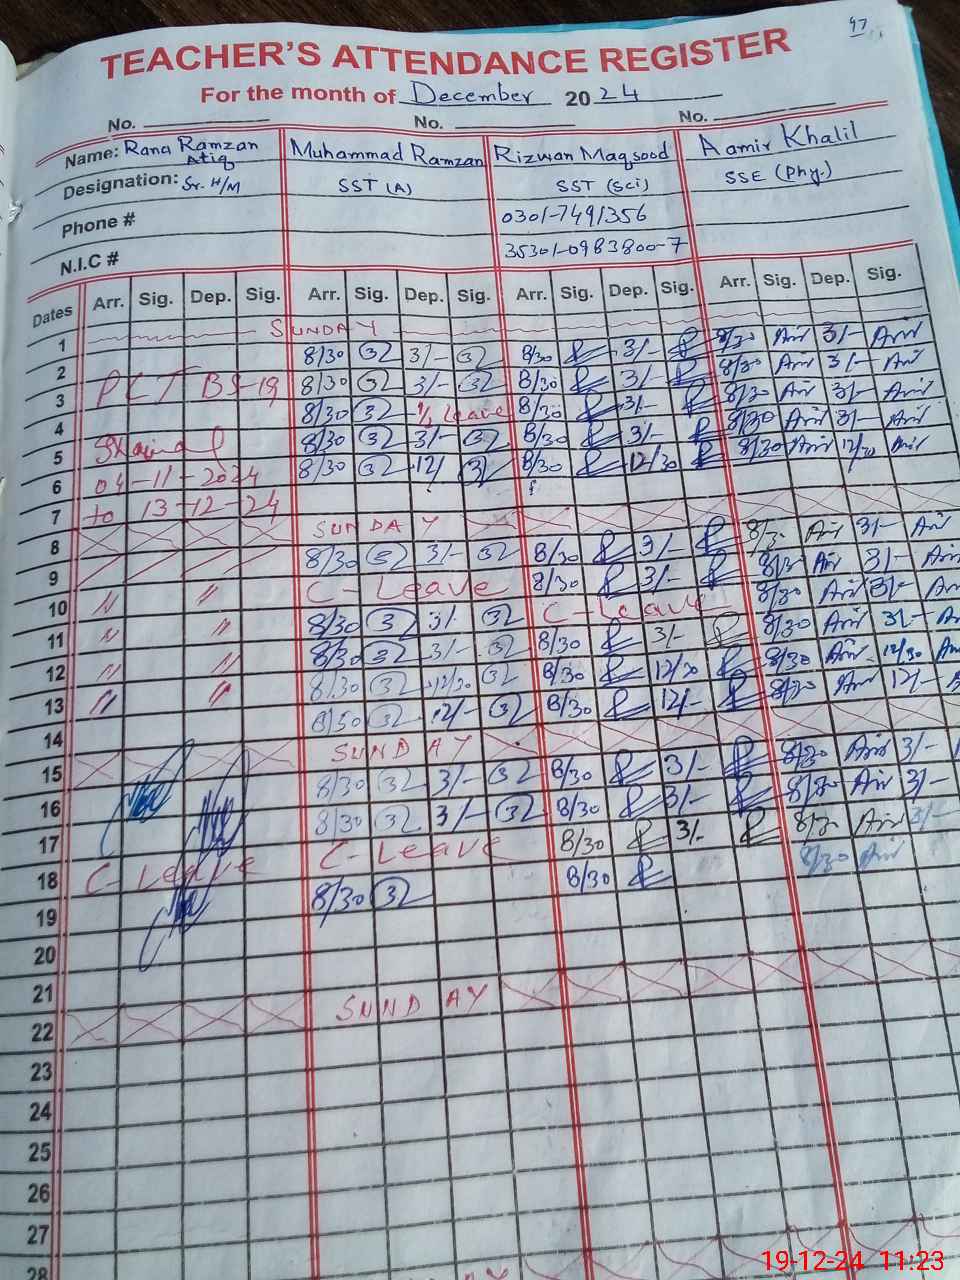 47
TEACHER'S ATTENDANCE REGISTER
For the month of December 2024
No. No. No.
Name: Rana Ramzan Atiq Muhammad Ramzan Rizwan Maqsood Aamir Khalil
Designation: Sr. H/M SST (A) SST (Sci) SSE (Phy.)
Phone # 0301-7491356
N.I.C # 35301-0983800-7
Dates Arr. Sig. Dep. Sig. Arr. Sig. Dep. Sig. Arr. Sig. Dep. Sig. Arr. Sig. Dep. Sig.
1 SUNDAY
2 8/30 3/- 8/30 3/- 8/30 3/-
3 PCT BS-19 8/30 3/- 8/30 3/- 8/30 3/-
4 8/30 ½ Leave 8/30 3/- 8/30 3/-
5 8/30 3/- 8/30 3/- 8/30 3/-
6 04-11-2024 8/30 12/ 8/30 12/30 8/30 12/30
7 to 13-12-24
8 SUNDAY
9 8/30 3/- 8/30 3/- 8/30 3/-
10 〃 〃 C-Leave 8/30 3/- 8/30 3/-
11 〃 〃 8/30 3/- C-Leave 8/30 3/-
12 〃 〃 8/30 3/- 8/30 3/- 8/30 3/-
13 〃 〃 8/30 12/30 8/30 12/30 8/30 12/30
14 8/30 12/- 8/30 12/- 8/30 12/-
15 SUNDAY
16 8/30 3/- 8/30 3/- 8/30 3/-
17 8/30 3/- 8/30 3/- 8/30 3/-
18 C-Leave C-Leave 8/30 3/- 8/30 3/-
19 8/30 8/30 8/30
20
21
22 SUNDAY
23
24
25
26
27
28
19-12-24 11:23